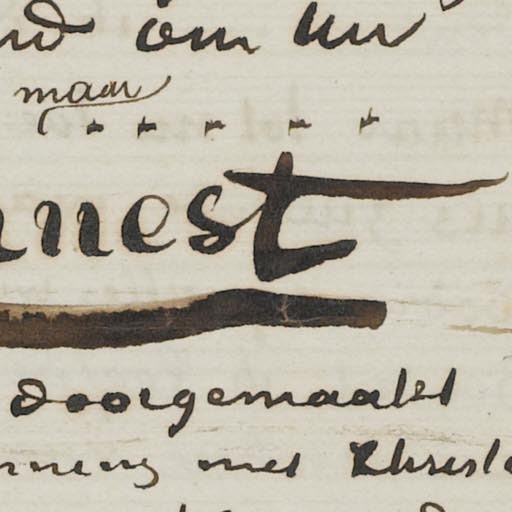 om uw
maar
nnest
doorgemaakt
nneng met Christ